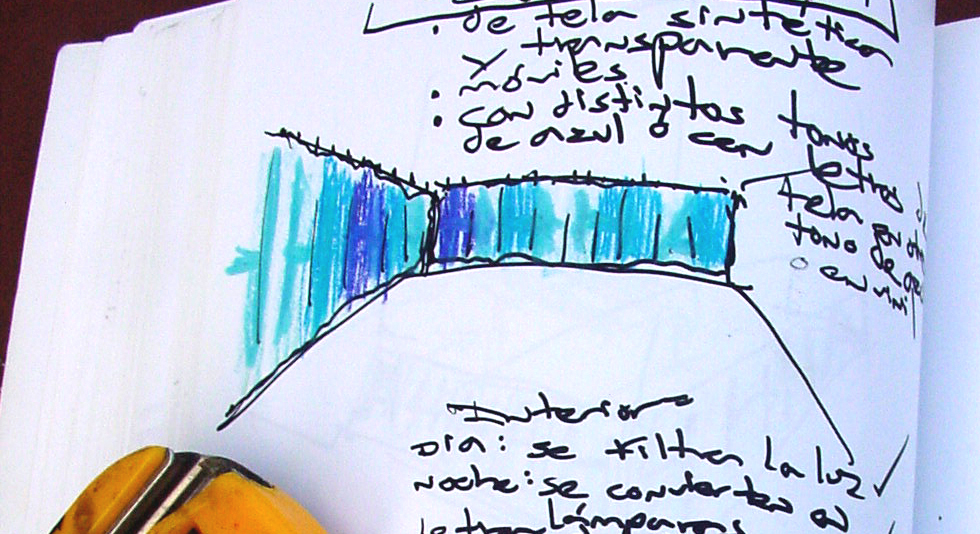 • de tela sintética
y transparente
• móviles
• con distintos tonos
de azul o con
letras
tela
tono de
o en
Interior
DIA: se filtra la luz ✓
noche: se convierten en
lámparas